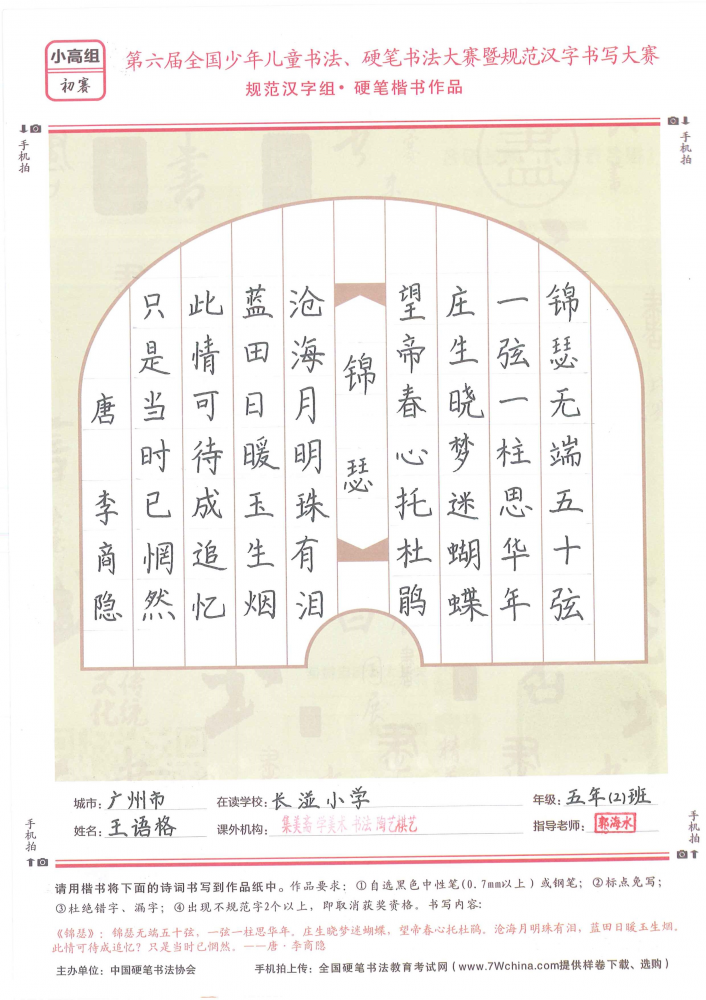 小高组
初赛
第六届全国少年儿童书法、硬笔书法大赛暨规范汉字书写大赛
规范汉字组·硬笔楷书作品
手机拍
手机拍
锦瑟无端五十弦
一弦一柱思华年
庄生晓梦迷蝴蝶
望帝春心托杜鹃
锦瑟
沧海月明珠有泪
蓝田日暖玉生烟
此情可待成追忆
只是当时已惘然
唐 李商隐
城市：广州市 在读学校：长湴小学 年级：五年(2)班
姓名：王语格 课外机构：集美斋 学美术 书法 陶艺棋艺 指导老师：郭海水
手机拍
手机拍
请用楷书将下面的诗词书写到作品纸中。作品要求：①自选黑色中性笔(0.7mm以上）或钢笔；②标点免写；
③杜绝错字、漏字；④出现不规范字2个以上，即取消获奖资格。书写内容：
《锦瑟》：锦瑟无端五十弦，一弦一柱思华年。庄生晓梦迷蝴蝶，望帝春心托杜鹃。沧海月明珠有泪，蓝田日暖玉生烟。
此情可待成追忆？只是当时已惘然。——唐·李商隐
主办单位：中国硬笔书法协会 手机拍上传：全国硬笔书法教育考试网（www.7Wchina.com提供样卷下载、选购）